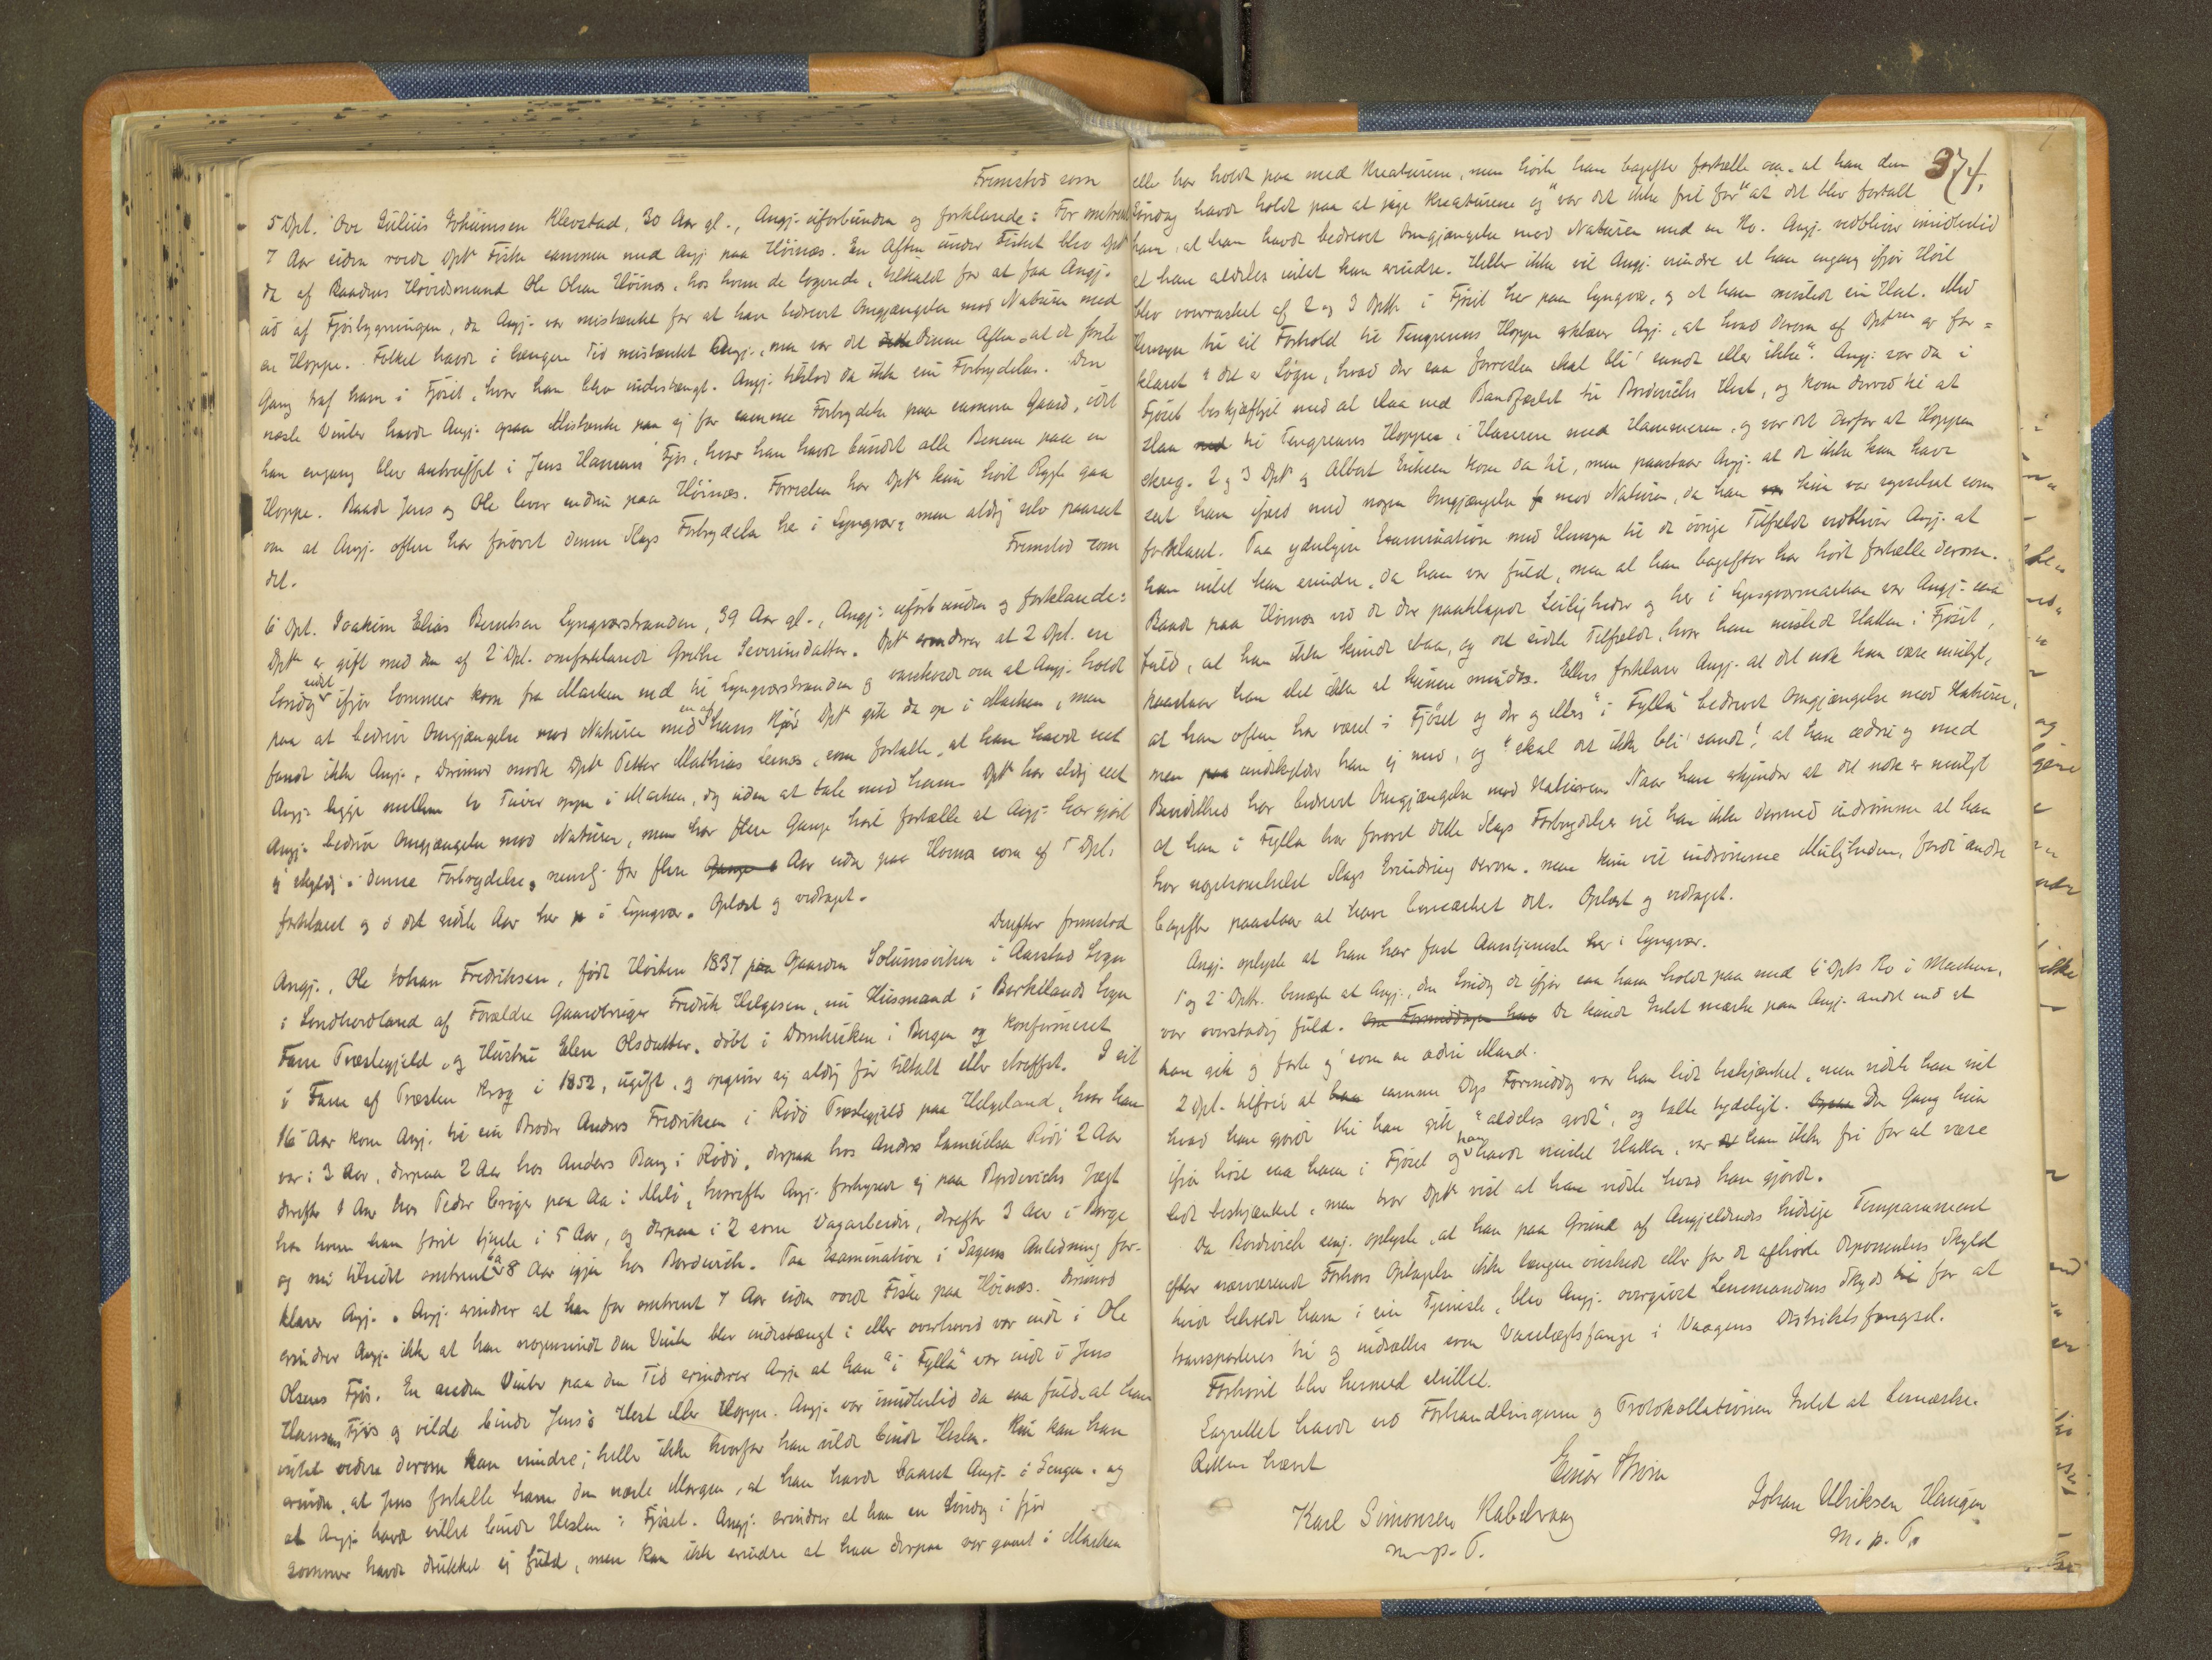 Fremstod som
5 Dpt. Ove Julius Johansen Klevstad, 30 Aar gl., Angj. uforbunden og forklarede: For omtrent
7 Aar siden roede Dptn Fiske sammen med Angj. paa Höinæs. En Aften under Fisket blev Dptn
da af Baadens Høvedsmand Ole Olsen Höinæs, hos hvem de logerede, tilkaldt for at faa Angj.
ud af Fjösbygningen, da Angj. var mistænkt for at have bedrevet Omgjængelse mod Naturen med
en Hoppe. Folket havde i længere Tid mistænkt Angj., men var det denne Aften, at de förste
Gang traf ham i Fjöset, hvor han blev indestængt. Angj. tilstod da ikke sin Forbrydelse. Den
næste Vinter havde Angj. ogsaa Mistanke paa sig for samme Forbrydelse paa samme Gaard, idet
han engang blev antruffet i Jens Hansens Fjös, hvor han havde bundet alle Benene paa en
Hoppe. Baade Jens og Ole lever endnu paa Höinæs. Forresten har Dptn kun hört Rygte gaa
om at Angj. oftere har forövet denne Slags Forbrydelse her i Lyngvær, men aldrig selv paaseet
det.
Fremstod som
6 Dpt. Joakim Elias Berntsen Lyngværstranden, 39 Aar gl., Angj. uforbunden og forklarede:
Dptn er gift med den af 2 Dpt. omforklarede Grethe Severinsdatter. Dptn erindrer at 2 Dpt. en
Söndag sidst ifjor Sommer kom fra Marken ned til Lyngværstranden og varskoede om at Angj. holdt
paa at bedrive Omgjængelse mod Naturen med en af hans Kjör. Dptn gik da op i Marken, men
fandt ikke Angj., derimod mødte Dptn Petter Mathias Lenes, som fortalte, at han havde seet
Angj. ligge mellem to Tuver oppe i Marken, dog uden at tale med ham. Dptn har aldrig seet
Angj. bedrive Omgjængelse mod Naturen, men har flere Gange hört fortælle at Angj. har gjort
sig skyldig i denne Forbrydelse, nemlig for flere Aar siden paa Höinæs som af 5 Dpt.
forklaret og i det sidste Aar her i Lyngvær. Oplæst og vedtaget.
Derefter fremstod
Angj., Ole Johan Fredriksen, födt Hösten 1837 paa Gaarden Solumsviken i Aarstad Sogn
i Söndhordland af Forældre Gaardbruger Fredrik Helgesen, nu Husmand i Birkelands Sogn
Fane Præstegjeld, og Hustru Elen Olsdatter, döbt i Domkirken i Bergen og konfirmeret
i Fane af Præsten Krog i 1852, ugift, og opgiver sig aldrig för tiltalt eller straffet. I sit
16 Aar kom Angj. til sin Broder Anders Fredriksen i Rödö Præstegjeld paa Helgeland, hvor han
var i 3 Aar, derpaa 2 Aar hos Anders Bang i Rödö, derpaa hos Anders Samuelsen Rödö 2 Aar
derefter 1 Aar hos Peder Criger paa Aa i Melö, hvorefter Angj. forhyrede sig paa Bordevichs Jægt
hos hvem han först tjente i 5 Aar, og derpaa i 2 som Dagarbeider, derefter 3 Aar i Borge
og nu tilsidst omtrent 6 a 8 Aar igjen hos Bordevich. Paa Examination i Sagens Anledning for-
klarer Angj. Angj. erindrer at han for omtrent 7 Aar siden roede Fiske paa Höinæs. Derimod
erindrer Angj. ikke at han nogensinde den Vinter blev indestængt i eller overhoved var inde i Ole
Olsens Fjös. En anden Vinter paa den Tid erindrer Angj. at han "i Fylla" var inde i Jens
Hansens Fjös og vilde binde Jens's Hest eller Hoppe. Angj. var imidlertid da saa fuld, at han
intet videre derom kan erindre; heller ikke hvorfor han vilde binde Hesten. Kun kan han
erindre, at Jens fortalte ham den næste Morgen, at han havde baaret Angj. i Sengen, og
at Angj. havde villet binde Hesten i Fjöset. Angj. erindrer at han en Söndag i fjor
Sommer havde drukket sig fuld, men kan ikke erindre at han derpaa var gaaet i Marken
374.
eller har holdt paa med Kreaturene, men hörte han bagefter fortælle om, at han den
Söndag havde holdt paa at jage Kreaturene og "var det ikke frit for" at det blev fortalt
ham, at han havde bedrevet Omgjængelse mod Naturen med en Ko. Angj. vedbliver imidlertid
at han aldeles intet kan erindre. Heller ikke vil Angj. erindre at han engang ifjor Höst
blev overrasket af 2 og 3 Dptr. i Fjöset her paa Lyngvær, og at han mistede sin Hat. Med
Hensyn til sit Forhold til Tengreens Hoppe erklærer Angj., at hvad derom af Dptrne er for-
klaret "det er Løgn, hvad der saa forresten skal bli' sandt eller ikke". Angj. var da i
Fjöset beskjæftiget med at slaa ned Baasfæstet til Bordevichs Hest, og kom derved til at
slaa til Tengreens Hoppe i Haserne med Hammeren, og var det derfor at Hoppen
skreg. 2 og 3 Dptr og Albert Eriksen kom da til, men paastaar Angj. at de ikke kan have
seet ham ifærd med nogen Omgjængelse mod Naturen, da han kun var sysselsat som
forklaret. Paa yderligere Examination med Hensyn til de övrige Tilfælde vedbliver Angj. at
han intet kan erindre, da han var fuld, men at han bagefter har hört fortælle derom.
Baade paa Höinæs ved de der paaklagede Leiligheder og her i Lyngværmarken var Angj. saa
fuld, at han ikke kunde staa, og det sidste Tilfælde, hvor han mistede Hatten i Fjöset,
paastaar han slet ikke at kunne mindes. Ellers forklarer Angj. at det nok kan være muligt,
at han oftere har været i Fjöset og der og ellers "i Fylla" bedrevet Omgjængelse mod Naturen,
men undskylder han sig med, og "skal det ikke bli sandt", at han ædru og med
Bevidsthed har bedrevet Omgjængelse mod Naturen. Naar han erkjender at det nok er muligt
at han i Fylla har forövet dette Slags Forbrydelser vil han ikke dermed indrömme at han
har nogetsomhelst Slags Erindring derom, men kun vil indrömme Muligheden, fordi andre
bagefter paastaar at have bemærket det. Oplæst og vedtaget.
Angj. oplyste at han har fast Aarstjeneste her i Lyngvær.
1 og 2 Dptr. benægte at Angj., den Söndag de ifjor saa ham holde paa med 6 Dpts Ko i Marken,
var overstadig fuld. De kunde Intet mærke paa Angj. andet end at
han gik og forte sig som en ædru Mand.
2 Dpt. tilföier at samme Dags Formiddag var han lidt beskjænket, men vidste han vel
hvad han gjorde thi han gik "aldeles godt", og talte tydeligt. Den Gang hun
ifjor höst saa ham i Fjöset og han havde mistet Hatten, var han ikke fri for at være
lidt beskjænket, men tror Dptn vist at han vidste hvad han gjorde.
Da Bordevich senj. oplyste, at han paa Grund af Angjeldendes hidsige Temparament
efter nærværende Forhörs Optagelse ikke længere önskede eller for de afhörte Deponenters Skyld
turde beholde ham i sin Tjeneste, blev Angj. overgivet Lensmandens Skyds for at
transporteres til og indsættes som Varetægtsfange i Vaagens Distriktsfængsel.
Forhöret blev hermed sluttet.
Lagrettet havde ved Forhandlingerne og Protokollationen Intet at bemærke.
Retten hævet
Karl Simonsen Kabelvaag
m. p. P.
Johan Ulriksen Haugen
m. p. P.